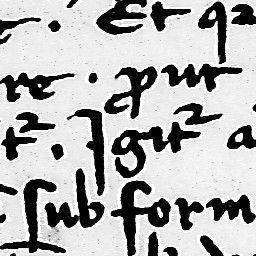 . Et
re . put
t². Igit²
sub form